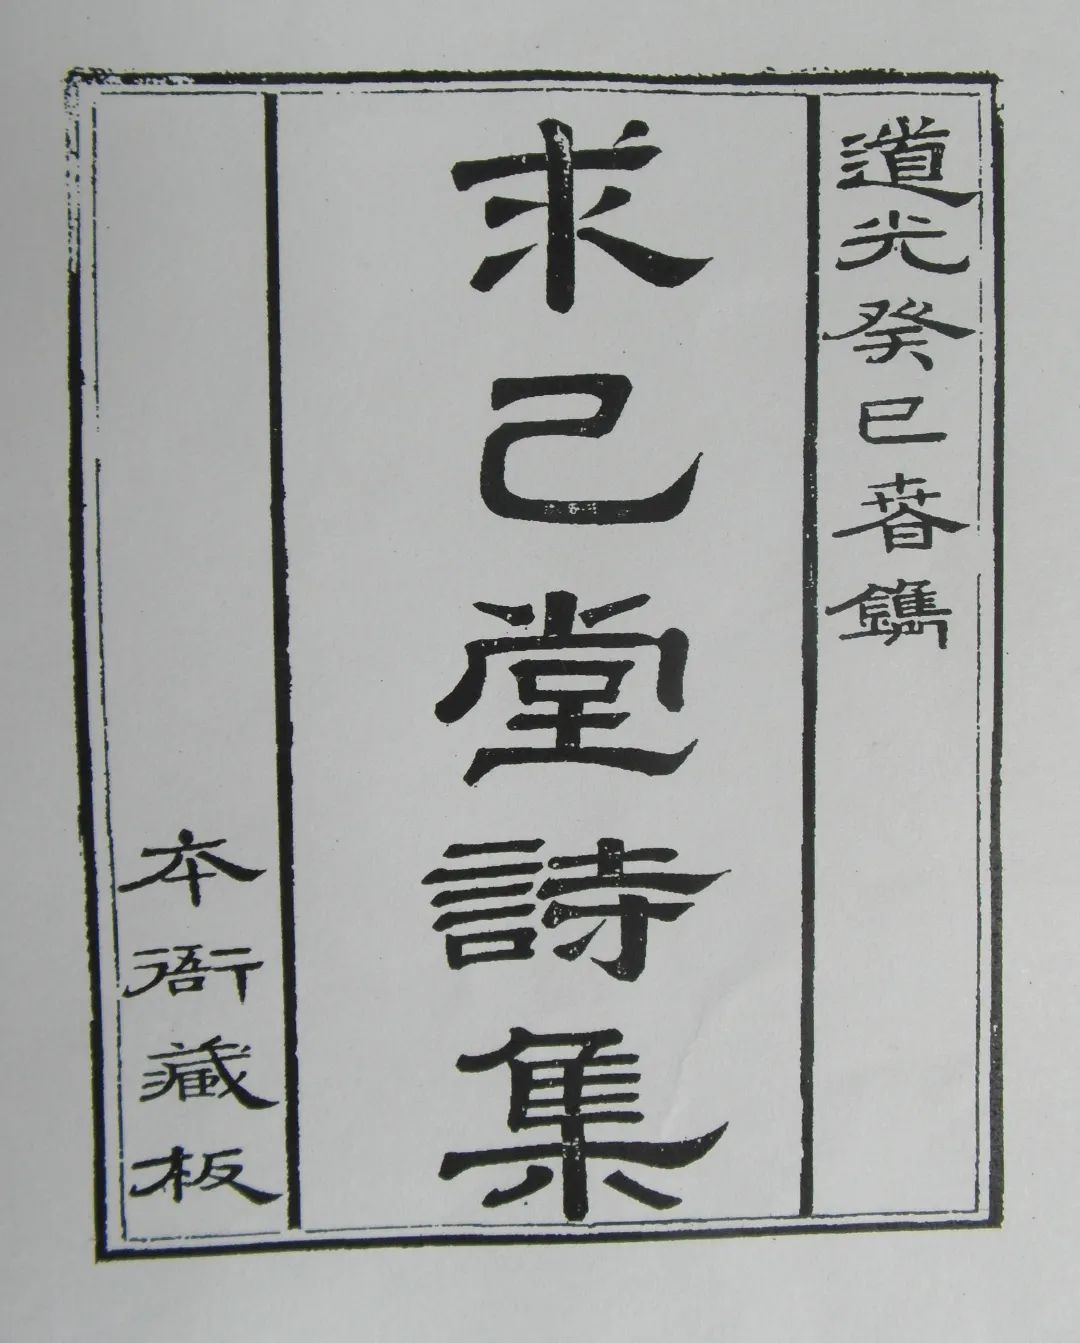 道光癸巳春鐫
求己堂詩集
本衙藏板